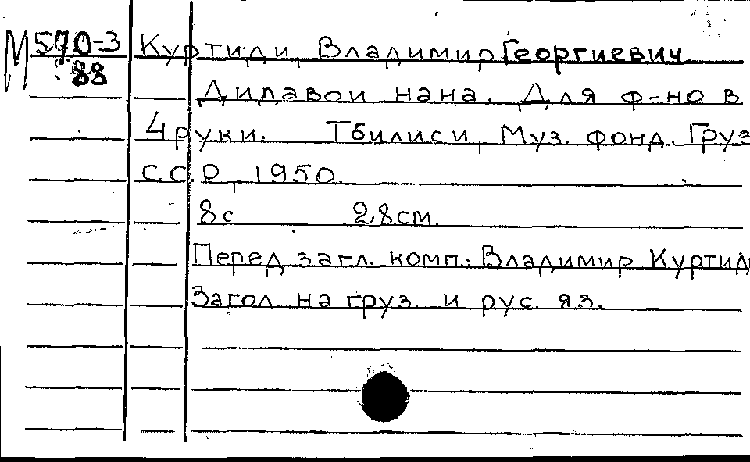 М 570-3 Куртиди, Владимир Георгиевич
88
Дилавои нана. Для ф-но в
4 руки. Тбилиси, Муз. фонд Груз
С.С.Р, 1950.
8с 28см.
Перед загл. комп.: Владимир Куртид
Загол на груз. и рус. яз.